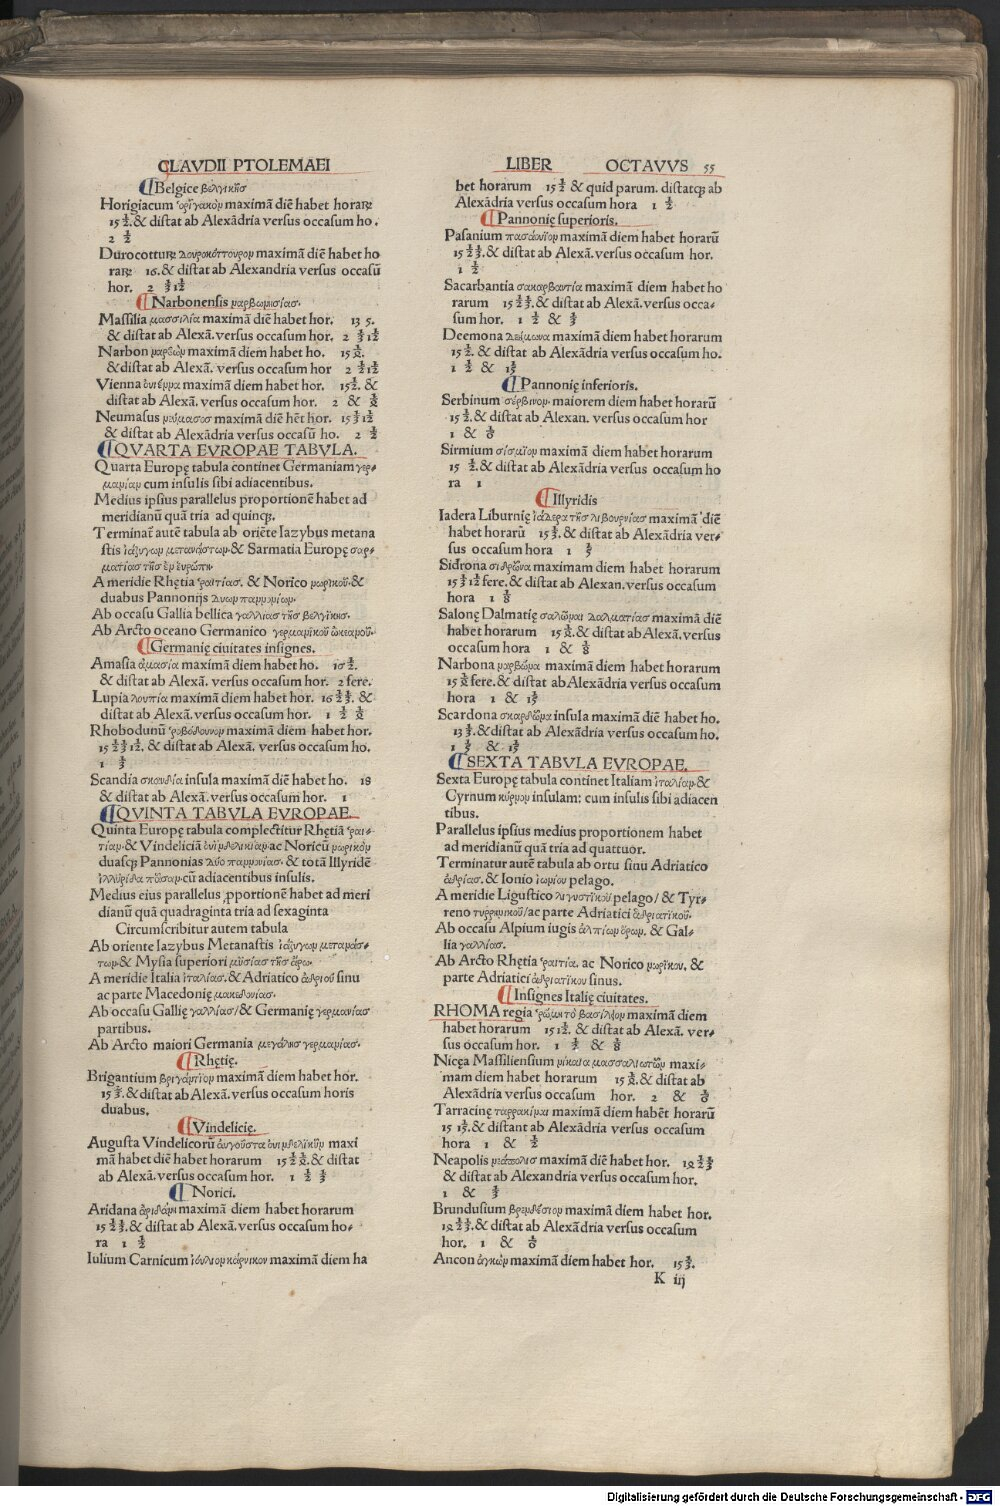 CLAVDII PTOLEMAEI
¶Belgice βελγικῆσ
Horigiacum ὀριγιακόμ maximā diē habet horaꝝ
15 ½.& distat ab Alexādria versus occasum ho.
2 ½
Durocottuꝝ maximā diē habet ho
raꝝ 16.& distat ab Alexandria versus occasū
hor. 2
¶Narbonensis
Massilia μασσιλία maximā diē habet hor.
& distat ab Alexā.versus occasum hor. 2
Narbon maximā diem habet ho.
&distat ab Alexā. versus occasum hor 2
Vienna maximā diem habet hor. 15½. &
distat ab Alexā.versus occasum hor. 2 &
Neumasus maximā diē hēt hor.
& distat ab Alexādria versus occasū ho. 2 ½
¶QVARTA EVROPAE TABVLA.
Quarta Europę tabula continet Germaniam γερ-
μανίαμ cum insulis sibi adiacentibus.
Medius ipsius parallelus proportionē habet ad
meridianū quā tria ad quinqꝫ.
Terminat autē tabula ab oriēte Iazybus metana
stis & Sarmatia Europę σαρ-
ματίασ τῆσ ἐμ ἐυρώπη·
A meridie Rhętia ῥαιτίασ. & Norico μωρικοῦ·&
duabus Pannonijs
Ab occasu Gallia bellica γαλλιασ τῆσ βελγικησ.
Ab Arcto oceano Germanico γερμαμικοῦ ὠκεαμοῦ·
¶Germanię ciuitates insignes.
Amasia ἀμασία maximā diem habet ho. 16 ½.
& distat ab Alexā. versus occasum hor. 2 fere.
Lupia λουπία maximā diem habet hor. &
distat ab Alexā.versus occasum hor. 1 ½
Rhobodunū maximā diem habet hor.
& distat ab Alexā. versus occasum ho.
1
Scandia σκανδία insula maximā diē habet ho. 18
& distat ab Alexā.versus occasum hor. 1
¶QVINTA TABVLA EVROPAE.
Quinta Europę tabula complectitur Rhętiā ῥαι-
τίαμ·& Vindeliciā ac Noricū μωρικόμ
duasqꝫ Pannonias δύο παμμομίασ· & totā Illyridē
cū adiacentibus insulis.
Medius eius parallelus ꝓportionē habet ad meri
dianū quā quadraginta tria ad sexaginta
Circumscribitur autem tabula
Ab oriente Iazybus Metanastis
& Mysia superiori μυσίασ τῆσ ἄμω·
A meridie Italia ἰταλίασ.& Adriatico sinu
ac parte Macedonię μακεδομίασ·
Ab occasu Gallię γαλλίασ/& Germanię γερμανίασ
partibus.
Ab Arcto maiori Germania μεγάλησ γερμαμίασ.
¶Rhętię.
Brigantium maximā diem habet hor.
& distat ab Alexā.versus occasum horis
duabus.
¶Vindelicię.
Augusta Vindelicorū maxi
mā habet diē habet horarum & distat
ab Alexā.versus occasum hor. 1 ½
¶Norici.
Aridana maximā diem habet horarum
& distat ab Alexā.versus occasum ho-
ra 1 ½
Iulium Carnicum maximā diem ha
LIBER OCTAVVS 55
bet horarum 15 ½ & quid parum. distatqꝫ ab
Alexādria versus occasum hora 1 ½
¶Pannonię superioris.
Pasanium maximā diem habet horarū
& distat ab Alexā.versus occasum hor.
1 ½
Sacarbantia σακαρβαντία maximā diem habet ho
rarum & distat ab Alexā.versus occa-
sum hor. 1 ½ &
Deemona maximā diem habet horarum
15 ½. & distat ab Alexādria versus occasum ho.
1 ½ &
¶Pannonię inferioris.
Serbinum σέρβινομ maiorem diem habet horarū
15 ½.& distat ab Alexan. versus occasum hor
1 &
Sirmium maximā diem habet horarum
15 ½.& distat ab Alexādria versus occasum ho
ra 1
¶Illyridis
Iadera Liburnię maximā diē
habet horarū & distat ab Alexādria ver-
sus occasum hora 1
Sidrona maximam diem habet horarum
fere.& distat ab Alexan.versus occasum
hora 1
Salonę Dalmatię maximā diē
habet horarum & distat ab Alexā.versus
occasum hora 1 &
Narbona maximā diem habet horarum
fere.& distat ab Alexādria versus occasum
hora 1 &
Scardona insula maximā diē habet ho.
& distat ab Alexādria versus occasum ho.
1 &
¶SEXTA TABVLA EVROPAE.
Sexta Europę tabula continet Italiam ἰταλίαμ·&
Cyrnum κύρμομ insulam: cum insulis sibi adiacen
tibus.
Parallelus ipsius medius proportionem habet
ad meridianū quā tria ad quattuor.
Terminatur autē tabula ab ortu sinu Adriatico
& Ionio pelago.
A meridie Ligustico λιγυστικοῦ pelago/ & Tyr-
reno τυρρημικοῦ/ac parte Adriatici
Ab occasu Alpium iugis ἀλπίωμ ὄρωμ. & Gal-
lia γαλλίασ.
Ab Arcto Rhętia ῥαιτία. ac Norico μωρίκου. &
parte Adriatici sinus.
¶Insignes Italię ciuitates.
RHOMA regia maximā diem
habet horarum & distat ab Alexā. ver-
sus occasum hor. 1 &
Nicęa Massiliensium maxi-
mam diem habet horarum & distat ab
Alexādria versus occasum hor. 2 &
Tarracinę ταρρακίμαι maximā diem habēt horarū
& distant ab Alexādria versus occasum
hora 1 & ½
Neapolis maximā diē habet hor.
& distat ab Alexandria versus occasum hor.
1 &
Brundusium maximā diem habet hor.
& distat ab Alexādria versus occasum
hor. 1 &
Ancon ἀγκώμ maximā diem habet hor.
K iij
Digitalisierung gefördert durch die Deutsche Forschungsgemeinschaft - DFG